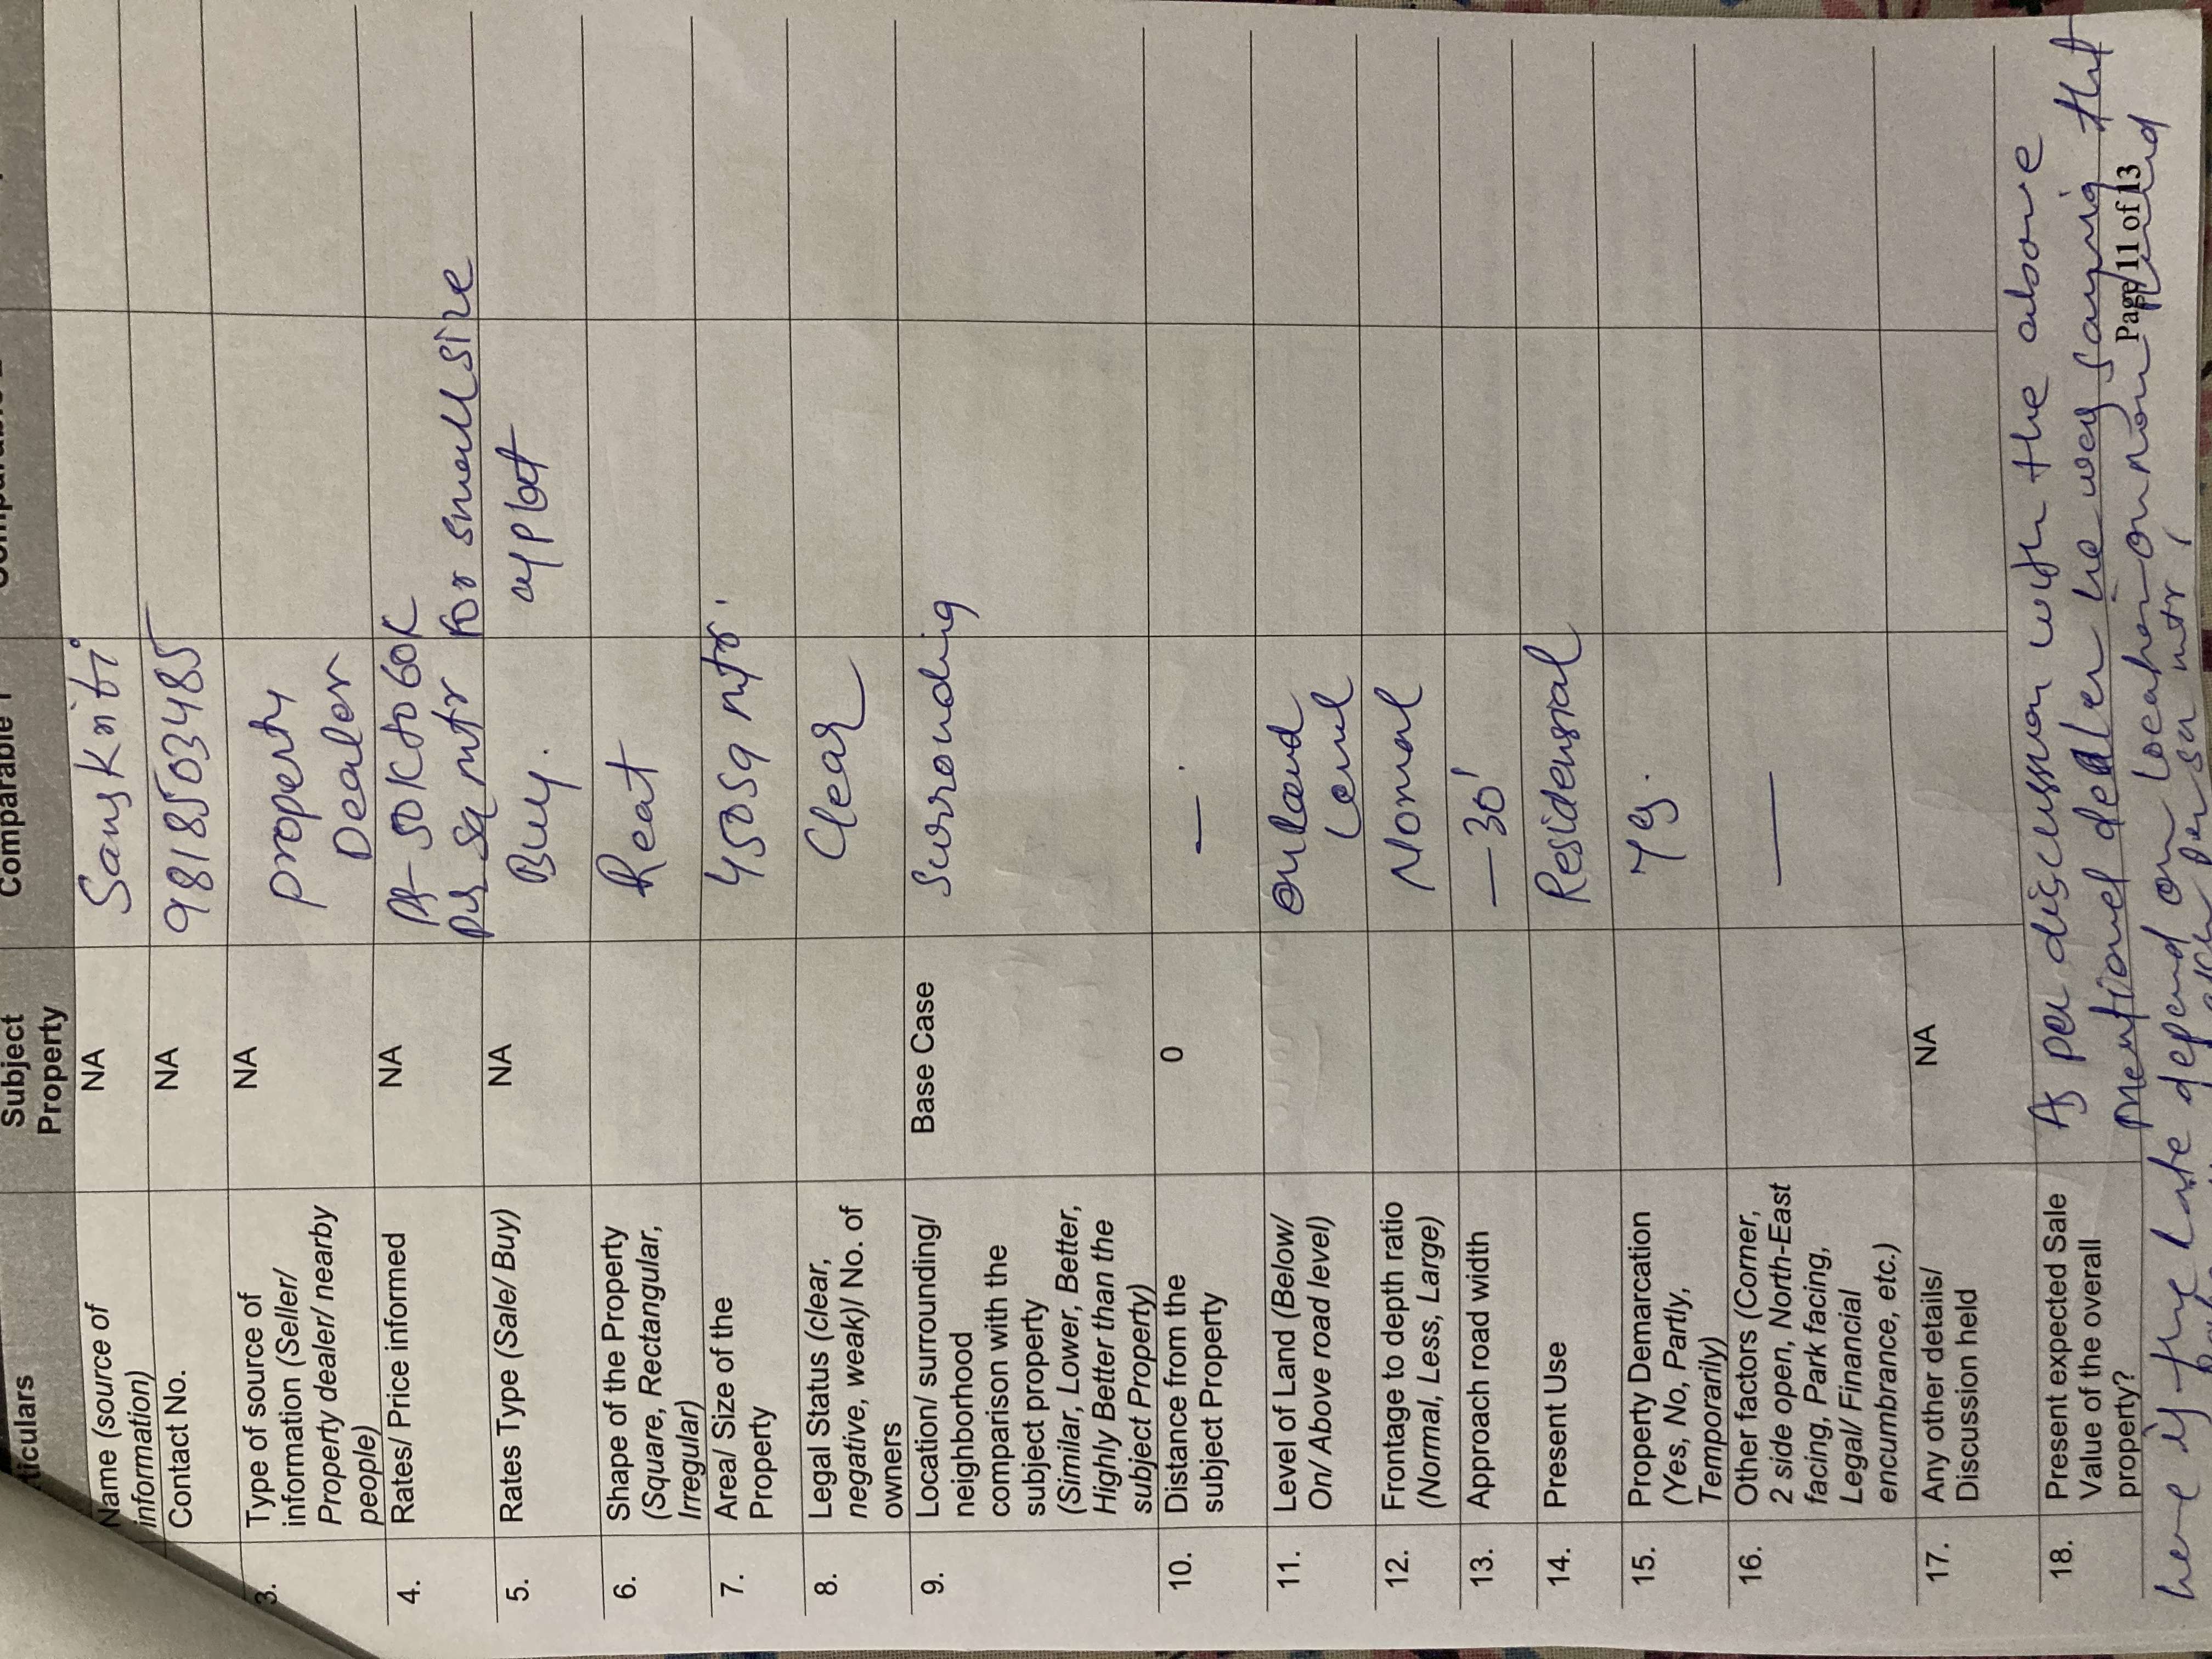 ticulars
Subject
Property
Comparable 1
Name (source of
information)
NA
Sanskriti
Contact No.
NA
9818503485
3.
Type of source of
information (Seller/
Property dealer/ nearby
people)
NA
property
Dealer
4.
Rates/ Price informed
NA
50K to 60K
per sq mtr for small size
of plot
5.
Rates Type (Sale/ Buy)
NA
Buy.
6.
Shape of the Property
(Square, Rectangular,
Irregular)
Reat
7.
Area/ Size of the
Property
450 sq mtr.
8.
Legal Status (clear,
negative, weak)/ No. of
owners
Clear
9.
Location/ surrounding/
neighborhood
comparison with the
subject property
(Similar, Lower, Better,
Highly Better than the
subject Property)
Base Case
Surrouding
10.
Distance from the
subject Property
0
—
11.
Level of Land (Below/
On/ Above road level)
Level
12.
Frontage to depth ratio
(Normal, Less, Large)
Normal
13.
Approach road width
— 30'
14.
Present Use
Residensial
15.
Property Demarcation
(Yes, No, Partly,
Temporarily)
Yes.
16.
Other factors (Corner,
2 side open, North-East
facing, Park facing,
Legal/ Financial
encumbrance, etc.)
—
17.
Any other details/
Discussion held
NA
18.
Present expected Sale
Value of the overall
property?
As per discussion with the above
mentioned dealer he was saying that
here if the rate depend on location on now
per sq mtr
Page 11 of 13